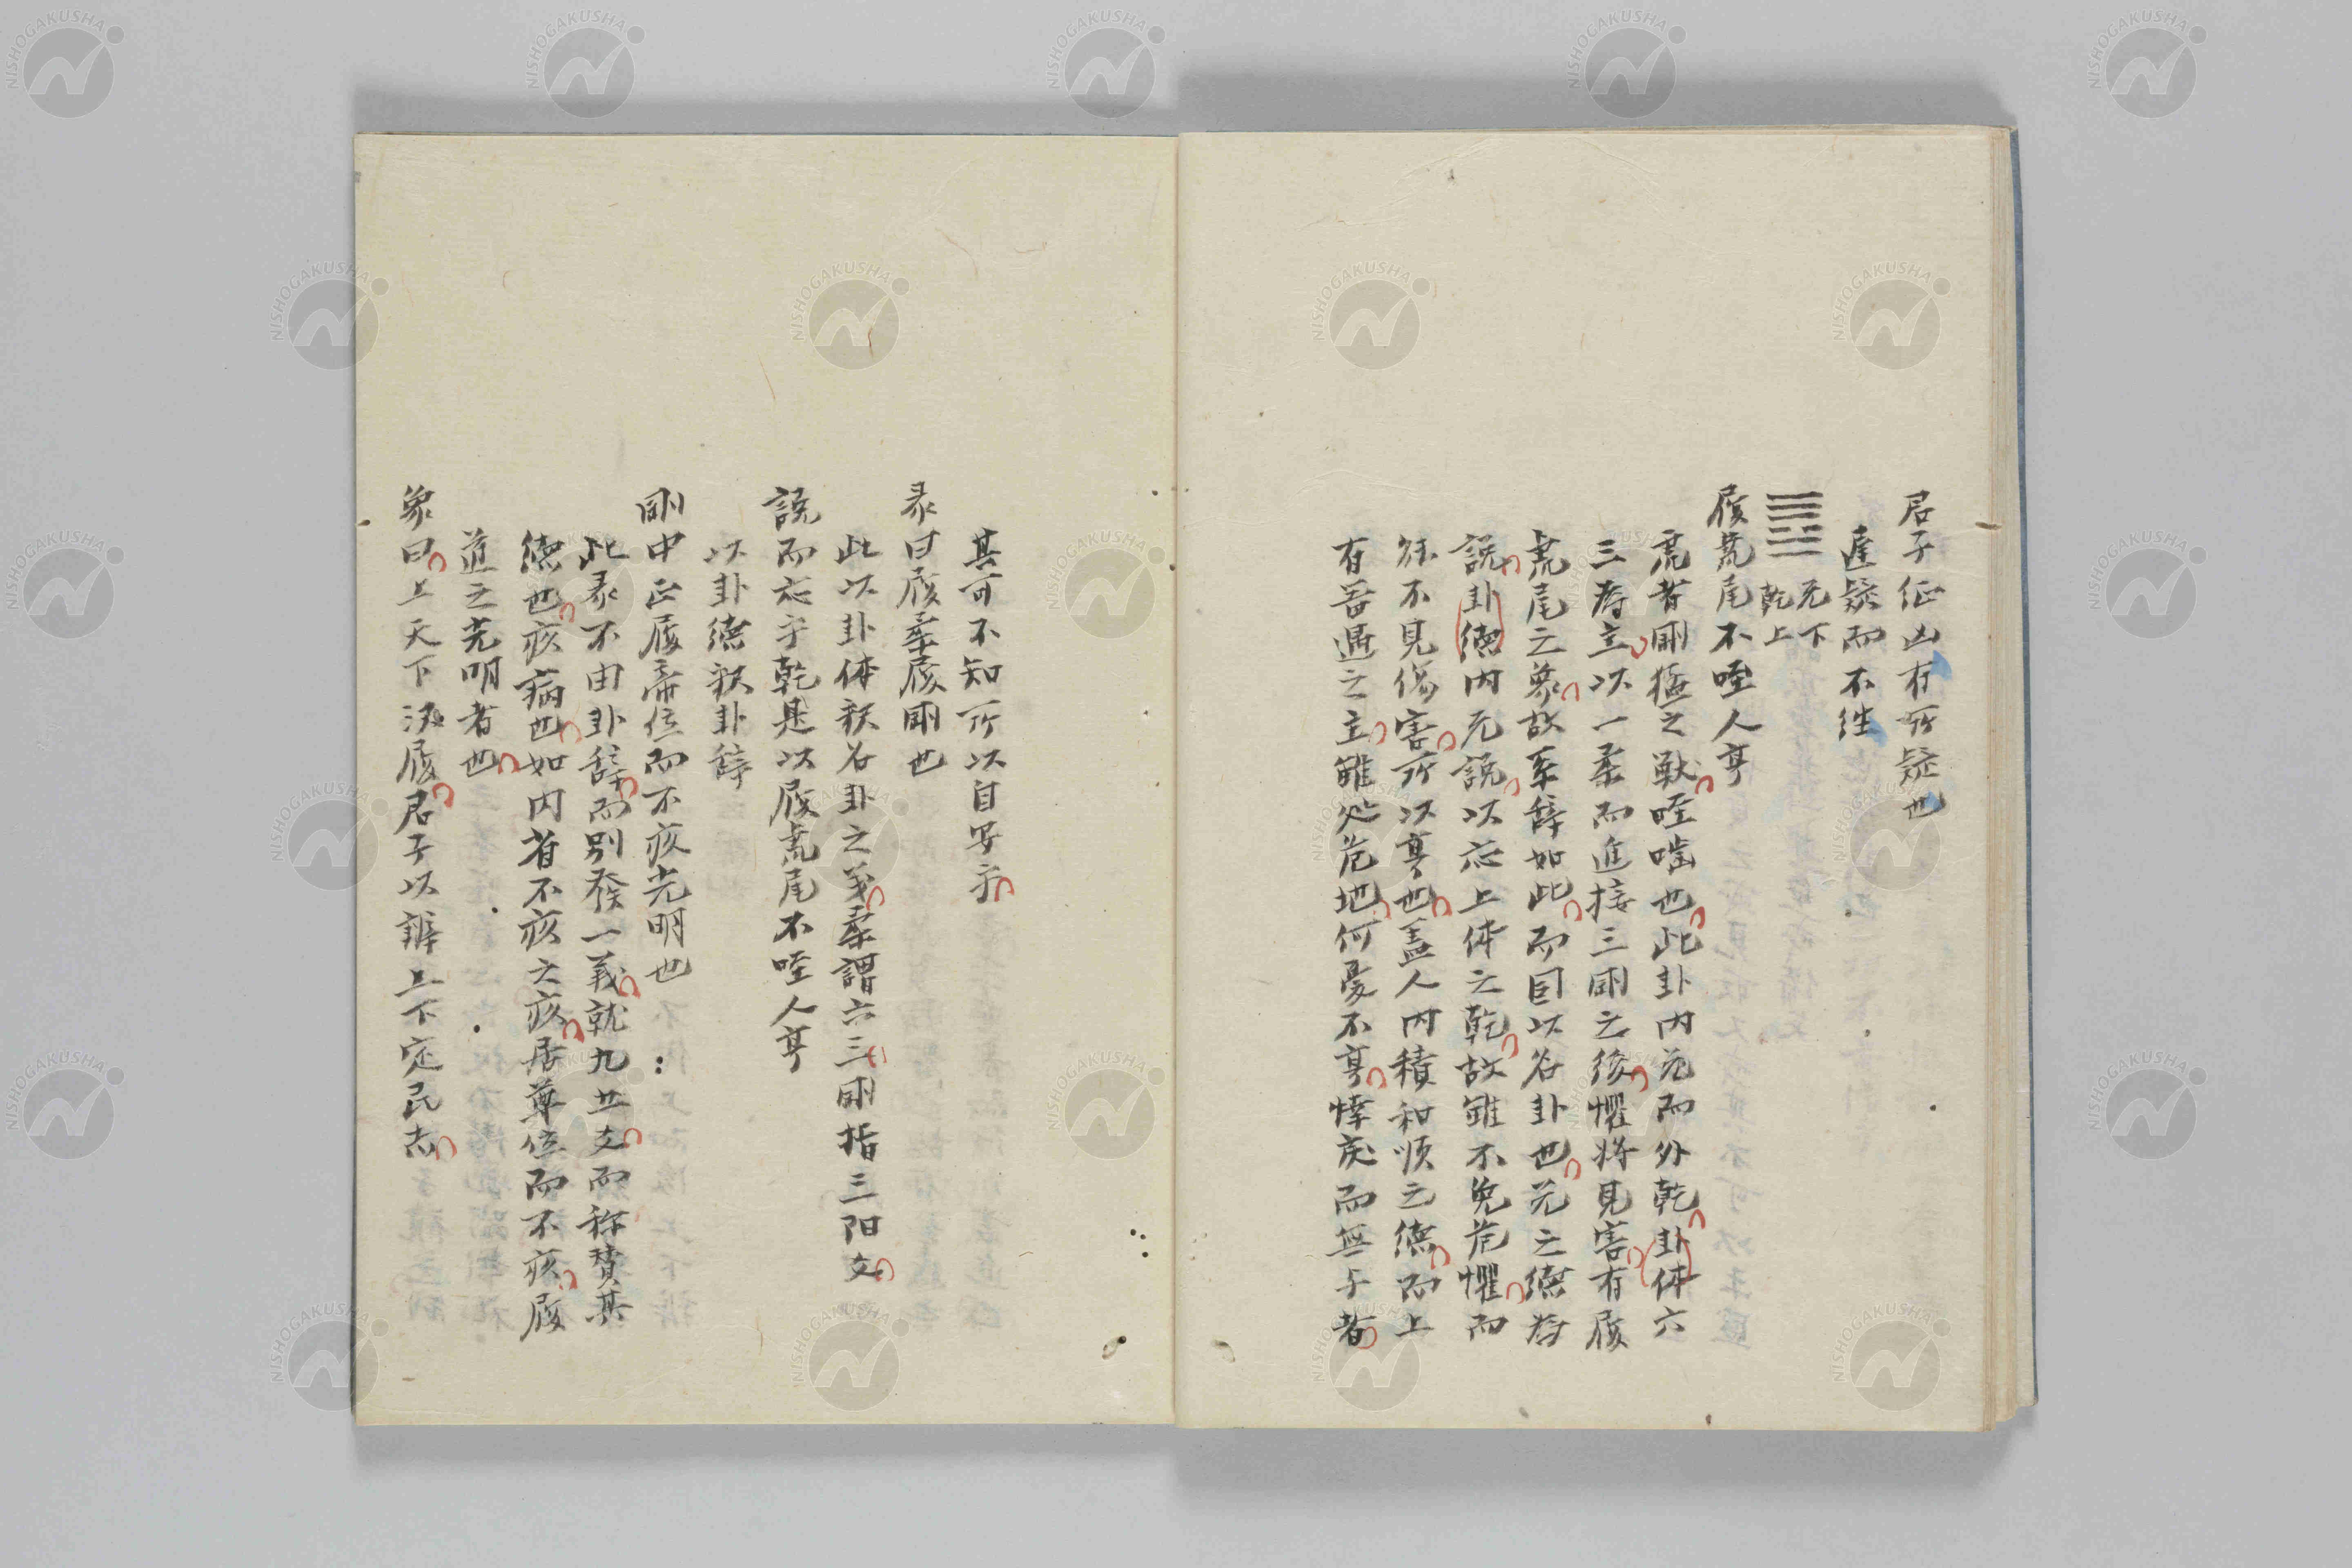 君子征凶有所疑也
遲疑而不往
兌下
乾上
履虎尾不咥人亨
虎者剛猛之獣咥噬也此卦内兌而外乾卦体六
三為主以一柔而進接三剛之後懼将見害有履
虎尾之象故系辞如此而因以名卦也兌之德為
説卦德内兌説以応上体之乾故雖不免危懼而
終不見傷害所以亨也盖人内積和順之德而上
有吾遇之主雖处危地何憂不亨悻戻而無与者
其可不知所以自安乎
彖曰履柔履剛也
此以卦体釈名卦之義柔謂六三剛指三阳爻
説而応乎乾是以履虎尾不咥人亨
以卦德釈卦辞
剛中正履帝位而不疚光明也
此彖不由卦辞而別発一義就九五爻而称賛其
德也疚病也如内省不疚之疚居尊位而不疚履
道之光明者也
象曰上天下沢履君子以辨上下定民志
NISHOGAKUSHA